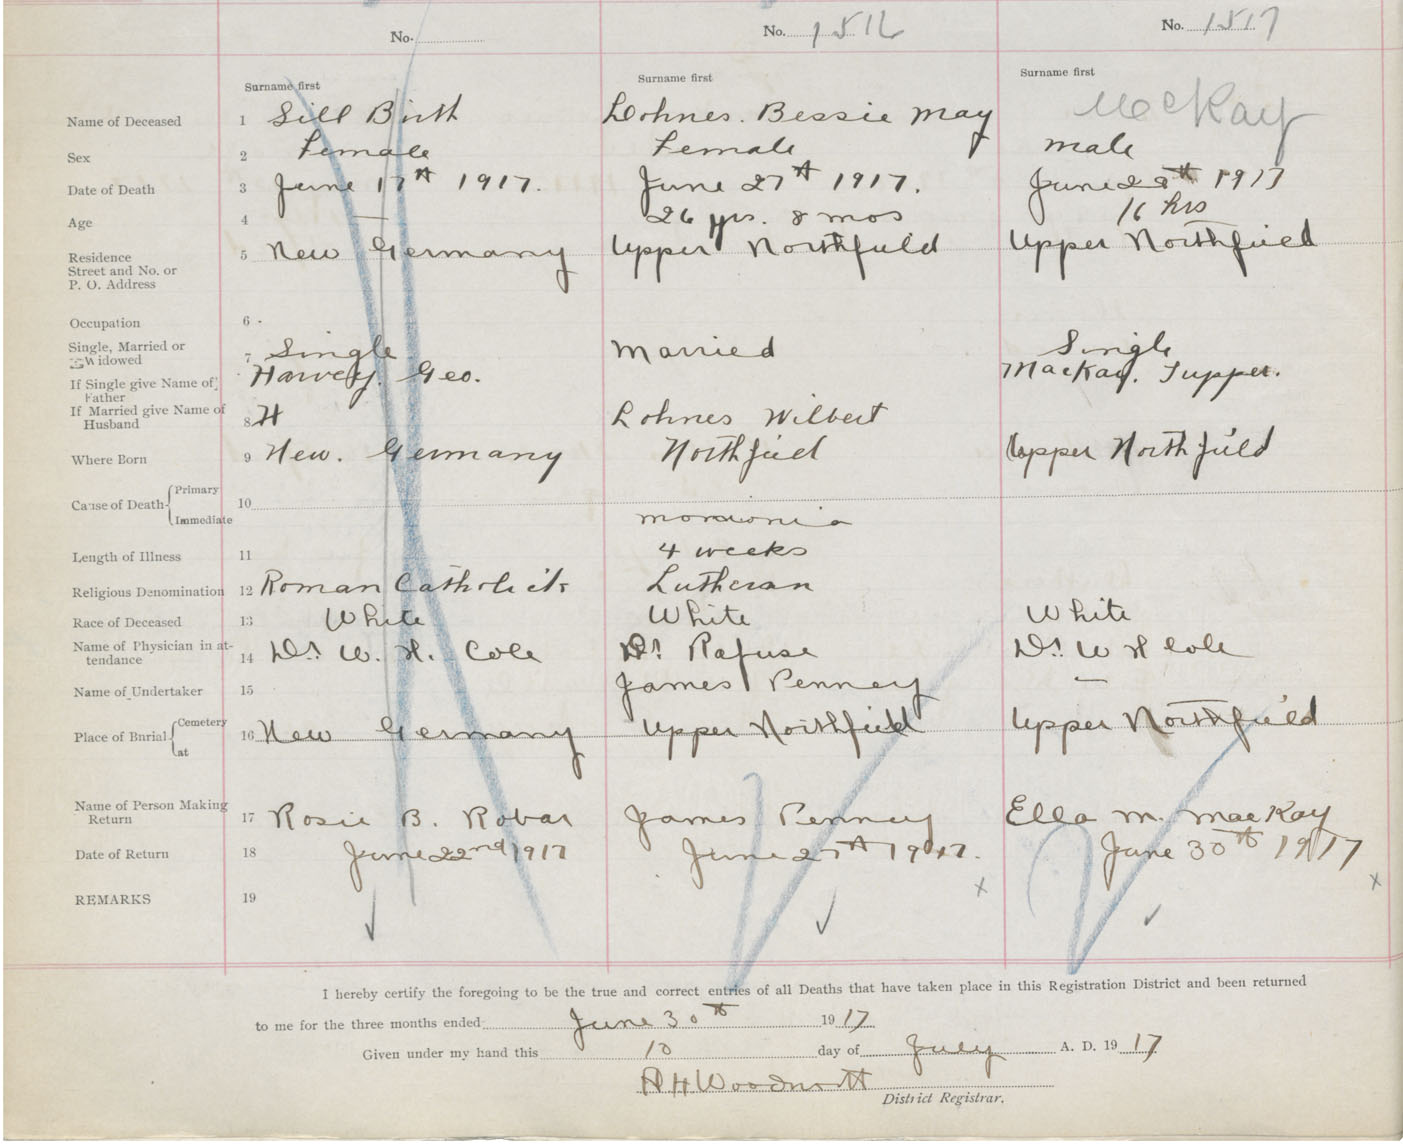 No. No. 1516 No. 1517
Surname first Surname first Surname first
Name of Deceased 1 Sill Birth Lohnes. Bessie May McKay
Sex 2 Female Female male
Date of Death 3 June 17th 1917. June 27th 1917. June 29th 1917
Age 4 — 26 yrs. 8 mos 16 hrs
Residence 5 New Germany Upper Northfield Upper Northfield
Street and No. or
P. O. Address
Occupation 6
Single, Married or Widowed 7 Single Married Single
If Single give Name of Father Harvey. Geo. MacKay. Tupper.
If Married give Name of Husband 8 H Lohnes Wilbert
Where Born 9 New. Germany Northfield Upper Northfield
Cause of Death Primary 10
Immediate
Length of Illness 11 4 weeks
Religious Denomination 12 Roman Catholick Lutheran
Race of Deceased 13 White White White
Name of Physician in attendance 14 Dr. W. H. Cole Dr. Rafuse Dr. W H Cole
Name of Undertaker 15 James Penney —
Place of Burial Cemetery at 16 New Germany Upper Northfield Upper Northfield
Name of Person Making Return 17 Rosie B. Robar James Penney Ella M. MacKay
Date of Return 18 June 22nd 1917 June 27th 1917. June 30th 1917
REMARKS 19 x x
I hereby certify the foregoing to be the true and correct entries of all Deaths that have taken place in this Registration District and been returned
to me for the three months ended June 30th 1917
Given under my hand this 10 day of July A. D. 1917
District Registrar.